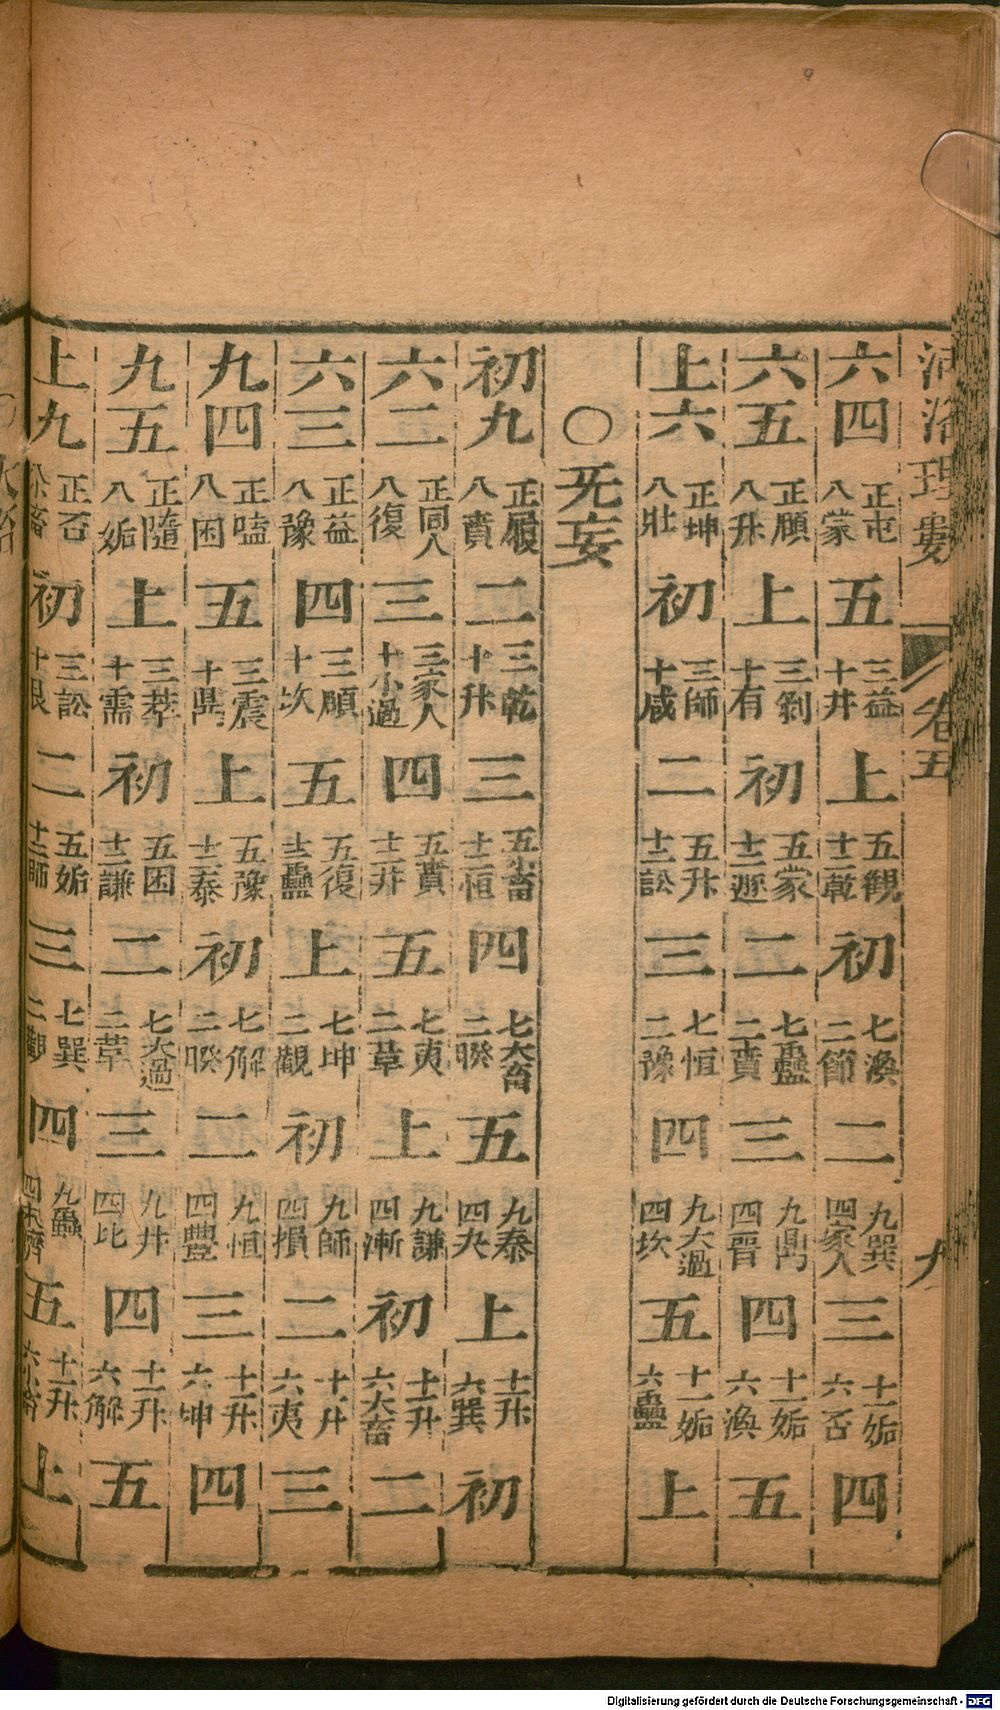 河洛理數 卷五 九
六四 正屯 八蒙 五 三益 十井 上 五觀 十二乾 初 七渙 二節 二 九巽 四家人 三 十一姤 六否 四
六五 正頤 八升 上 三剝 十有 初 五蒙 十二遯 二 七蠱 二賁 三 九鼎 四晉 四 十一姤 六渙 五
上六 正坤 八壯 初 三師 十咸 二 五升 十二訟 三 七恒 二豫 四 九大過 四坎 五 十一姤 六蠱 上
○无妄
初九 正履 八賁 二 三乾 十升 三 五小畜 十二恒 四 七大畜 二睽 五 九泰 四夬 上 十一升 六巽 初
六二 正同人 八復 三 三家人 十小過 四 五賁 十二井 五 七夷 二革 上 九謙 四漸 初 十一升 六大畜 二
六三 正益 八豫 四 三頤 十坎 五 五復 十二蠱 上 七坤 二觀 初 九師 四損 二 十一升 六夷 三
九四 正嗑 八困 五 三震 十鼎 上 五豫 十二泰 初 七解 二睽 二 九恒 四豐 三 十一升 六坤 四
九五 正隨 八姤 上 三萃 十需 初 五困 十二謙 二 七大過 二革 三 九井 四比 四 十一升 六解 五
上九 正否 畜 初 三訟 十艮 二 五姤 十二師 三 七巽 二觀 四 九蠱 四 濟 五 十一升 六 畜 上
Digitalisierung gefördert durch die Deutsche Forschungsgemeinschaft - DFG